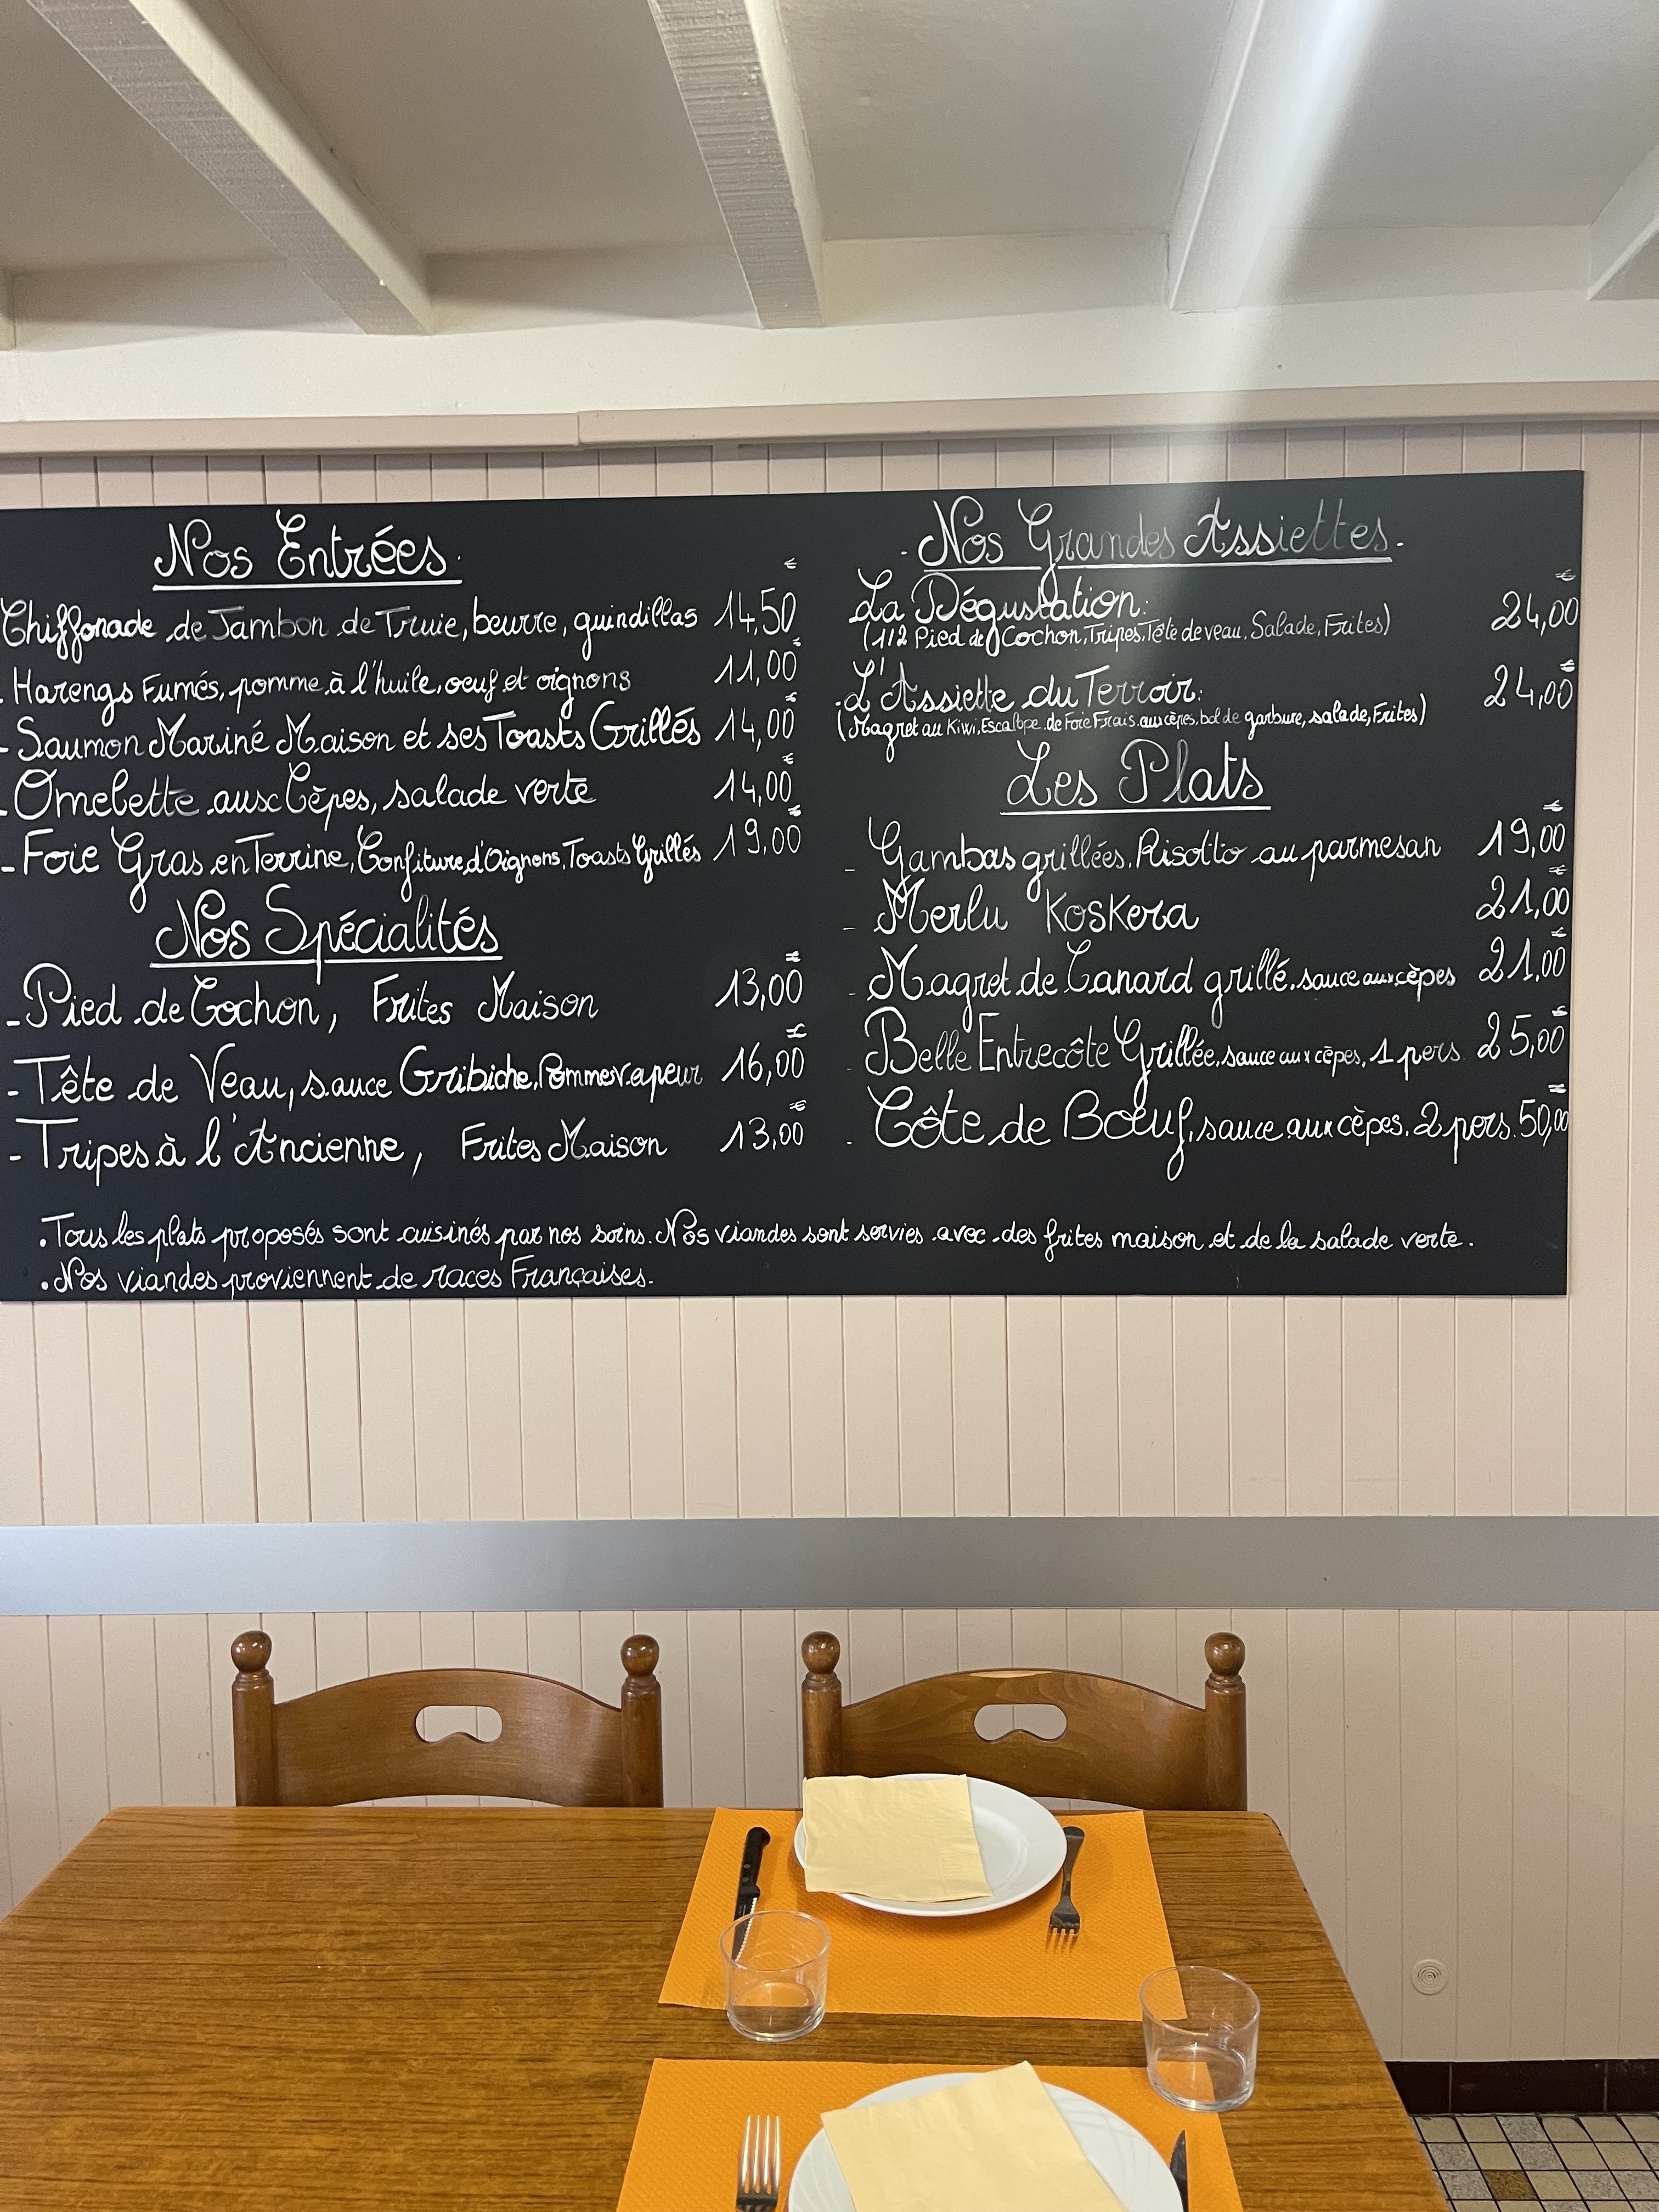 Nos Entrées.
€
Chiffonade de Jambon de Truie, beurre, guindillas 14,50
€
- Harengs Fumés, pomme à l'huile, oeuf et oignons 11,00
€
- Saumon Mariné Maison et ses Toasts Grillés 14,00
€
- Omelette aux Cèpes, salade verte 14,00
€
- Foie Gras en Terrine, Confiture d'Oignons, Toasts Grillés 19,00
Nos Spécialités
€
- Pied de Cochon, Frites Maison 13,00
€
- Tête de Veau, sauce Gribiche, Pomme vapeur 16,00
€
- Tripes à l'Ancienne, Frites Maison 13,00
- Nos Grandes Assiettes -
€
La Dégustation: 24,00
(1/2 Pied de Cochon, Tripes, Tête de veau, Salade, Frites)
€
L'Assiette du Terroir: 24,00
(Magret au Kiwi, Escalope de Foie Frais aux cèpes, bol de garbure, salade, Frites)
Les Plats
€
- Gambas grillées, Risotto au parmesan 19,00
€
- Merlu Koskera 21,00
€
- Magret de Canard grillé, sauce aux cèpes 21,00
€
- Belle Entrecôte Grillée, sauce aux cèpes, 1 pers 25,00
€
- Côte de Boeuf, sauce aux cèpes, 2 pers. 50,00
• Tous les plats proposés sont cuisinés par nos soins. Nos viandes sont servies avec des frites maison et de la salade verte.
• Nos viandes proviennent de races Françaises.